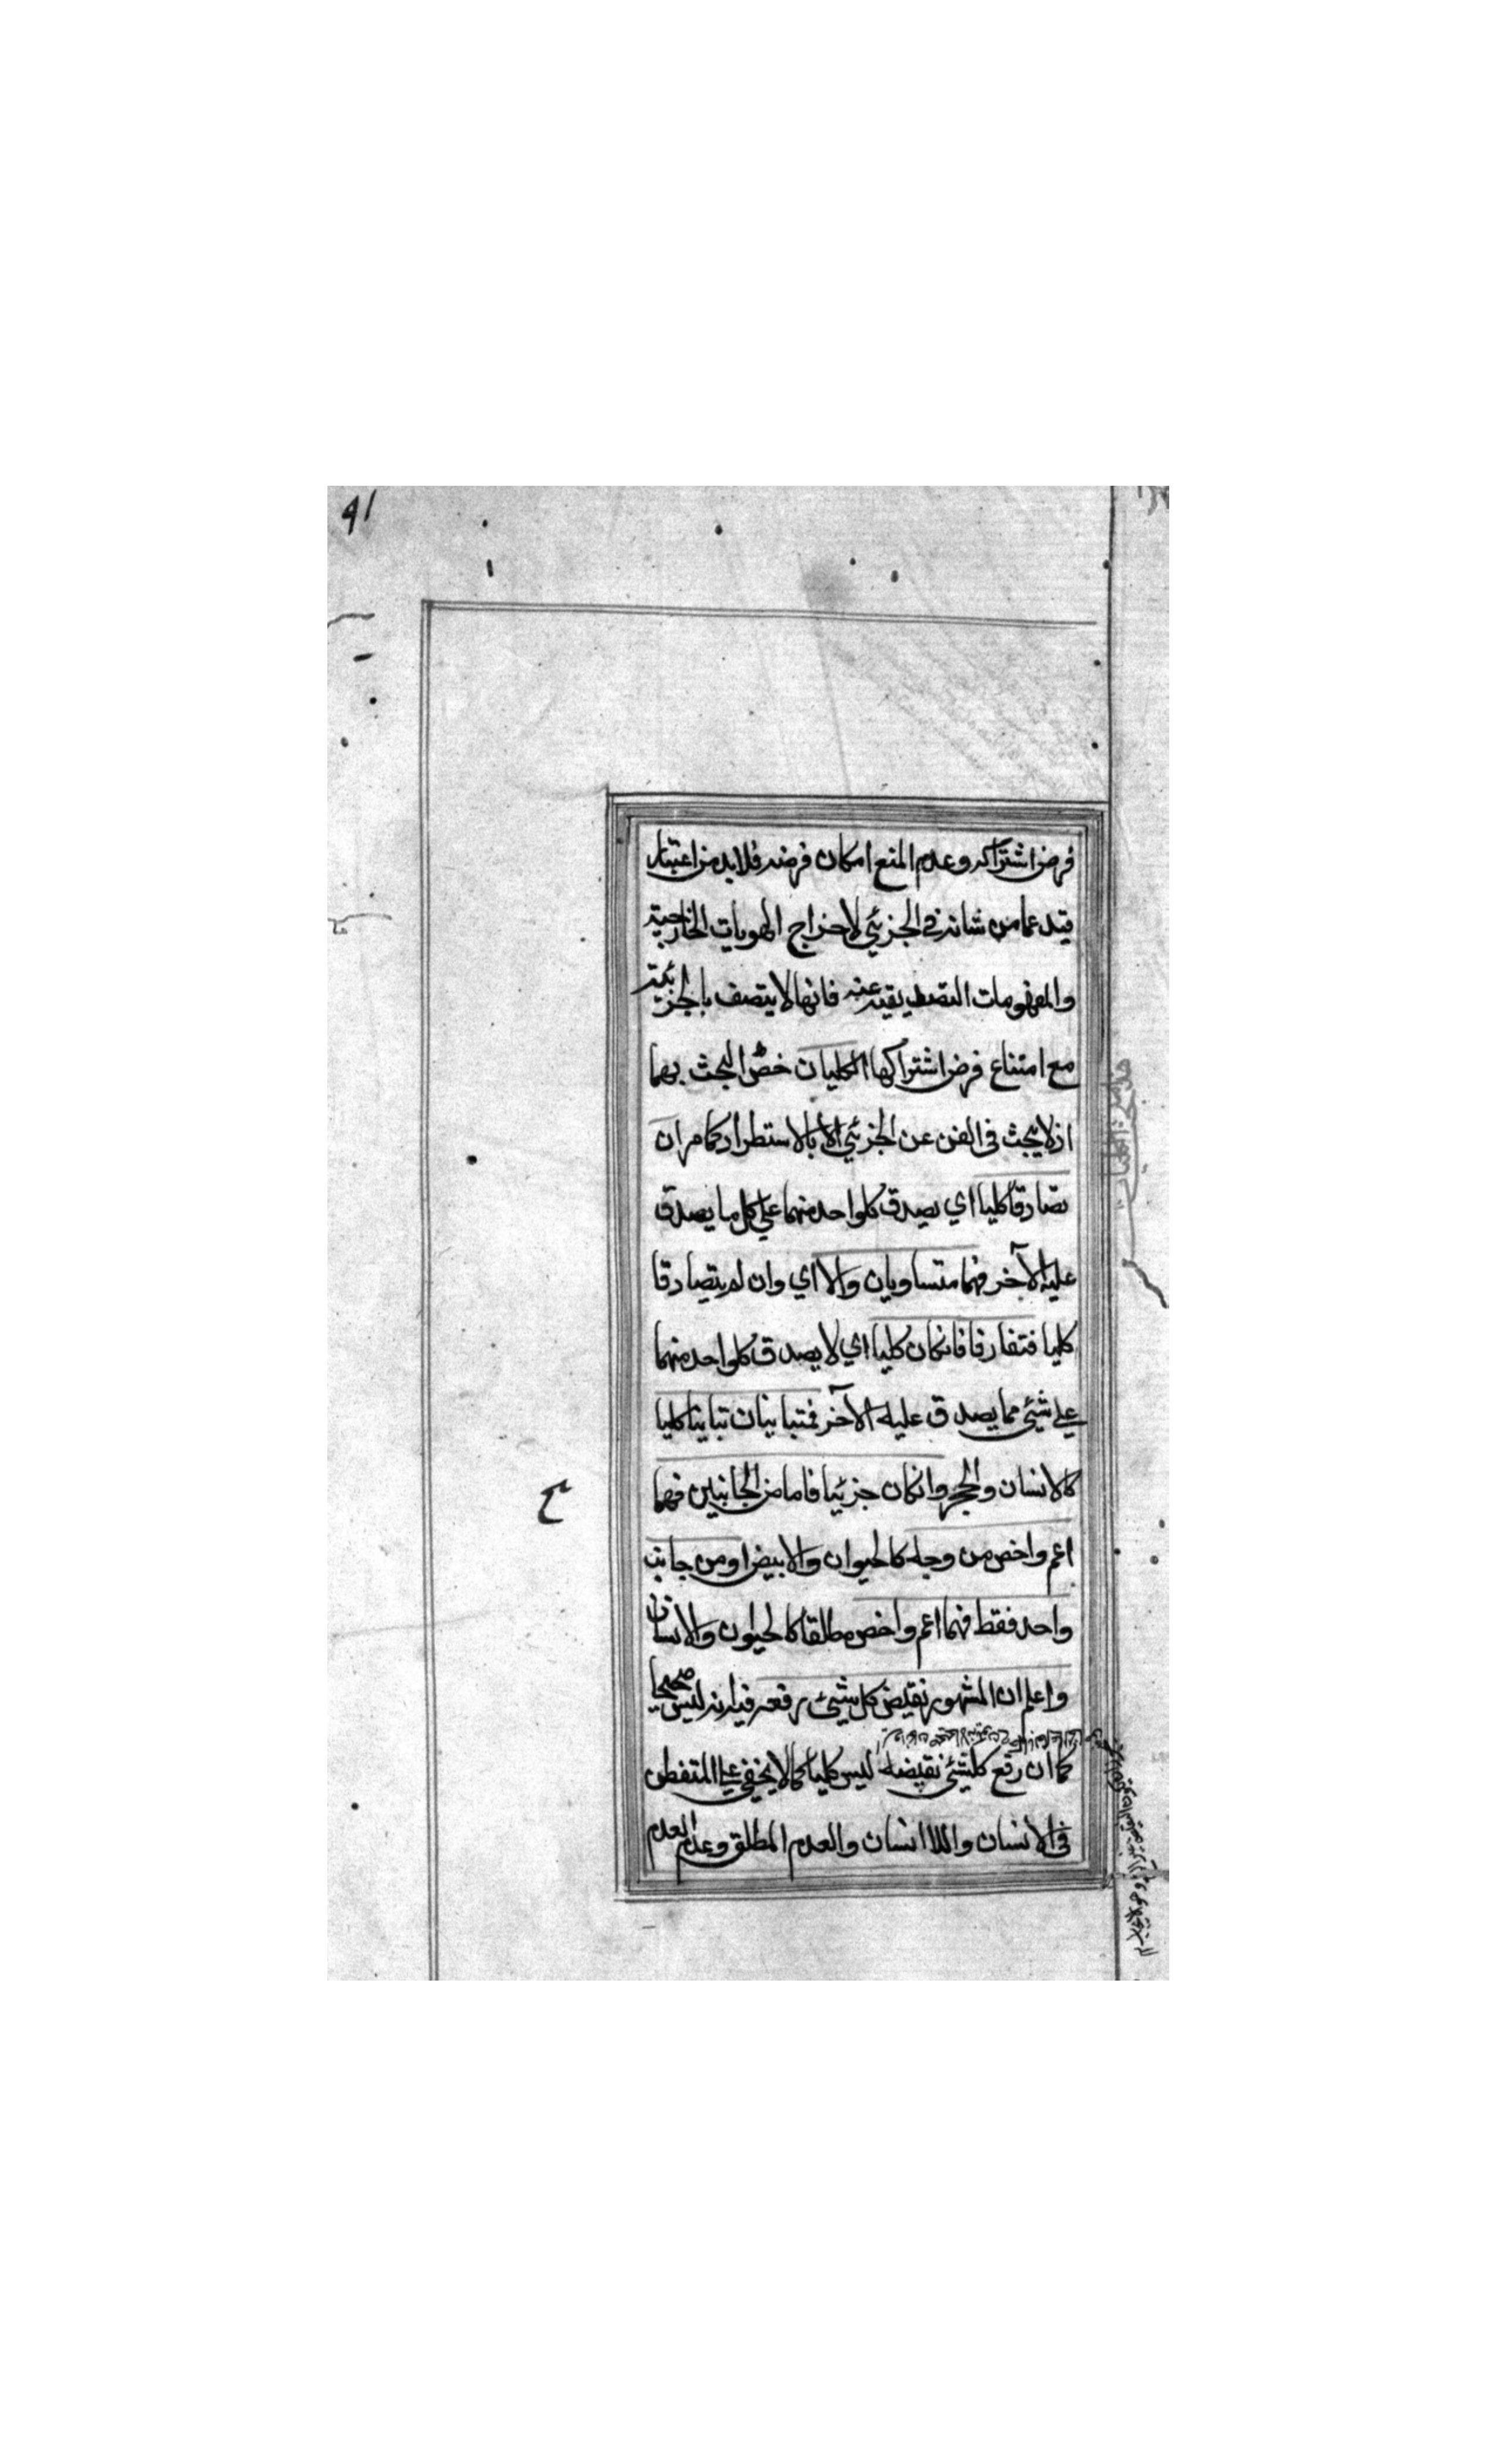 ٩١
فرض اشتراكه وعدم المنع امكان فرضه فلابد من اعتبار
قيد عما من شانه في الجزئي لاخراج الهويات الخارجية
والمفهومات التصديقية عنه فانها لا يتصف بالجزئية
مع امتناع فرض اشتراكها الكليان خصّ البحث بهما
اذ لا يبحث فى الفن عن الجزئي الا بالاستطراد كما مر ان
تصّادقا كليا اي يصدق كلواحد منهما على كل ما يصدق
عليه الآخر فهما متساويان والا اي وان لم يتصادقا
كليا فتفارقا فانكان كليا اي لا يصدق كلواحد منهما
على شئي مما يصدق عليه الآخر فمتباينان تباينا كليا
كالانسان والحجر وانكان جزئيا فاما من الجانبين فهما
اعم واخص من وجه كالحيوان والابيض او من جانب
واحد فقط فهما اعم واخص مطلقا كالحيوان والانسان
واعلم ان المشهور نقيض كل شيئ رفعه فيه انه ليس صحيحا
كما ان رفع كلشئي نقيضه ليس كليا كما لا يخفى على المتفطن
فى الانسان واللاانسان والعدم المطلق وعدم العدم
ح